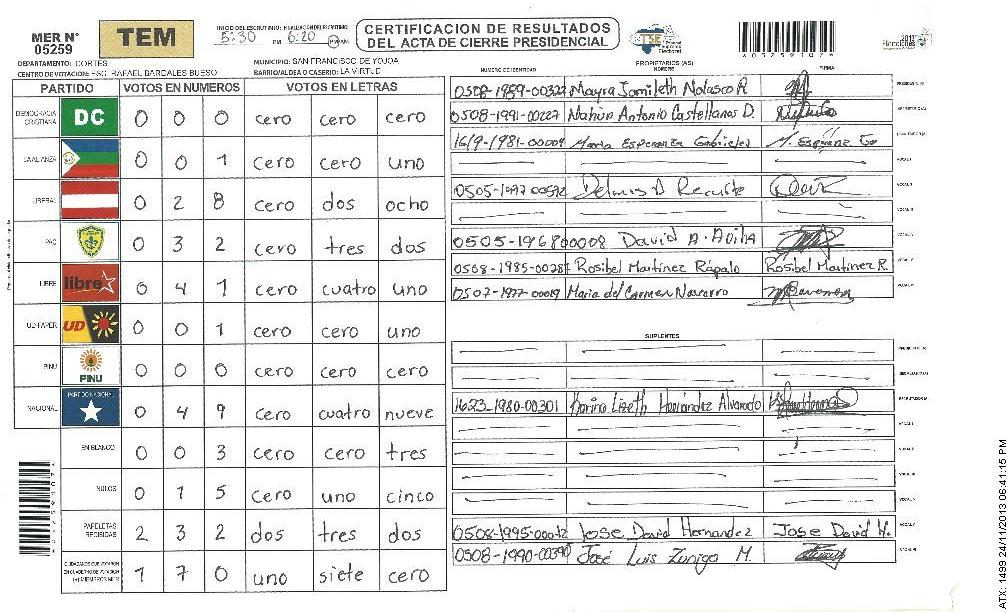 MER N° 05259
TEM
INICIO DEL ESCRUTINIO: FINALIZACION DEL ESCRUTINIO:
5:30 PM 6:20 PM AM
CERTIFICACION DE RESULTADOS
DEL ACTA DE CIERRE PRESIDENCIAL
TSE
Electoral
2013
Elecciones
DEPARTAMENTO: CORTES
MUNICIPIO: SAN FRANCISCO DE YOJOA
CENTRO DE VOTACION: ESC. RAFAEL BARDALES BUESO
BARRIO/ALDEA O CASERIO: LA VIRTUD
PARTIDO VOTOS EN NUMEROS VOTOS EN LETRAS
DEMOCRACIA CRISTIANA DC 0 0 0 cero cero cero
LA ALIANZA 0 0 1 cero cero uno
LIBERAL 0 2 8 cero dos ocho
PAC 0 3 2 cero tres dos
LIBRE libre 0 4 1 cero cuatro uno
UD FAPER UD 0 0 1 cero cero uno
PINU PINU 0 0 0 cero cero cero
NACIONAL PARTIDO NACIONAL 0 4 9 cero cuatro nueve
EN BLANCO 0 0 3 cero cero tres
NULOS 0 1 5 cero uno cinco
PAPELETAS RECIBIDAS 2 3 2 dos tres dos
CIUDADANOS QUE VOTARON EN CUADERNO DE VOTACION (+) MIEMBROS MER 1 7 0 uno siete cero
PROPIETARIOS (AS)
NUMERO DE IDENTIDAD NOMBRE FIRMA
0508-1989-00322 Mayra Jamileth Nolasco R
0508-1991-00227 Nahún Antonio Castellanos D.
1619-1981-00009 Maria Esperanza Gabrieles
0505-1977-00592 Delmis A
0505-196800008 David A. Avila
0508-1985-00287 Rosibel Martinez Rápalo Rosibel Martinez R.
0507-1977-00019 Maria del Carmen Navarro
SUPLENTES
1623-1980-00301 Karina Lizeth Hernández Alvarado
0508-1995-00012 Jose David Hernandez Jose David H.
0508-1990-00390 José Luis Zuniga M.
ATX: 1499 24/11/2013 06:41:15 PM